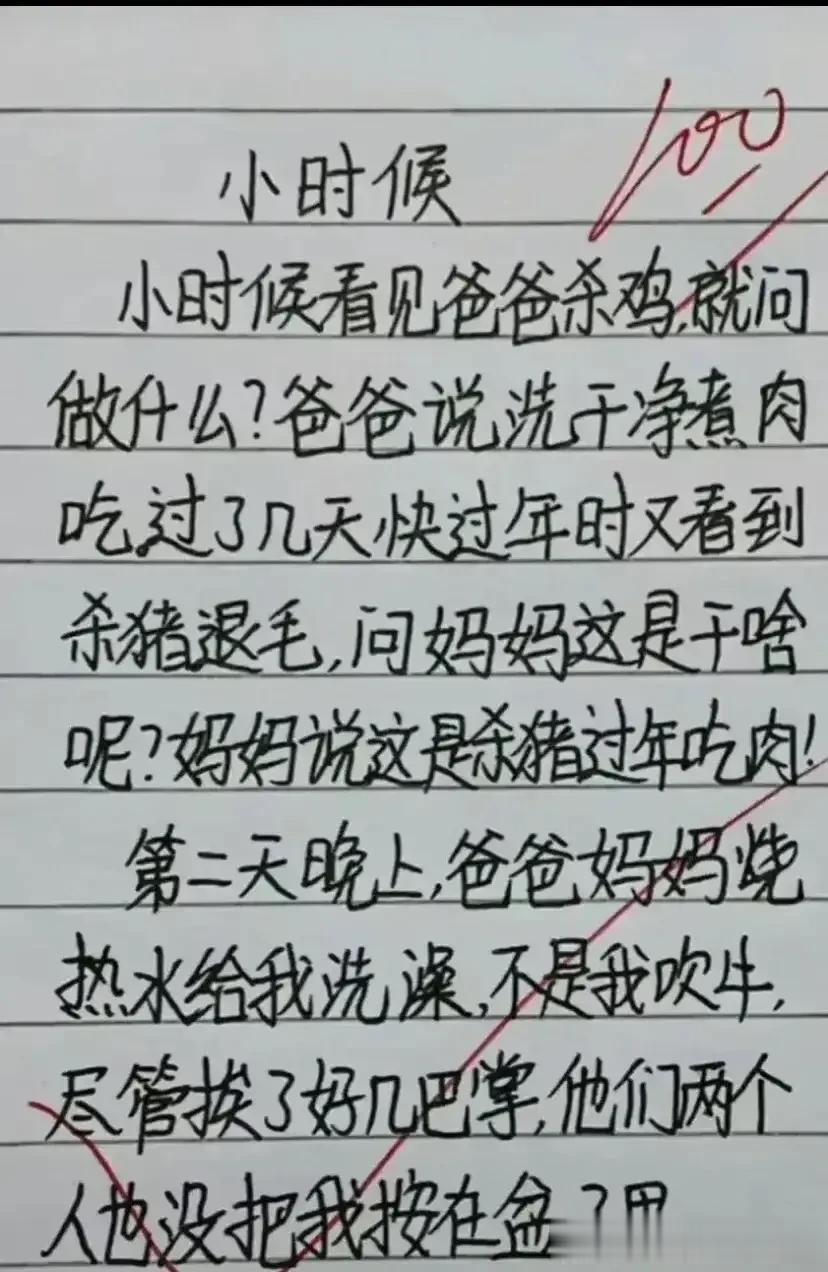 100
小时候
小时候看见爸爸杀鸡,就问
做什么?爸爸说洗干净煮肉
吃.过了几天快过年时又看到
杀猪退毛,问妈妈这是干啥
呢?妈妈说这是杀猪过年吃肉!
第二天晚上,爸爸妈妈烧
热水给我洗澡,不是我吹牛,
尽管挨了好几巴掌,他们两个
人也没把我按在盆